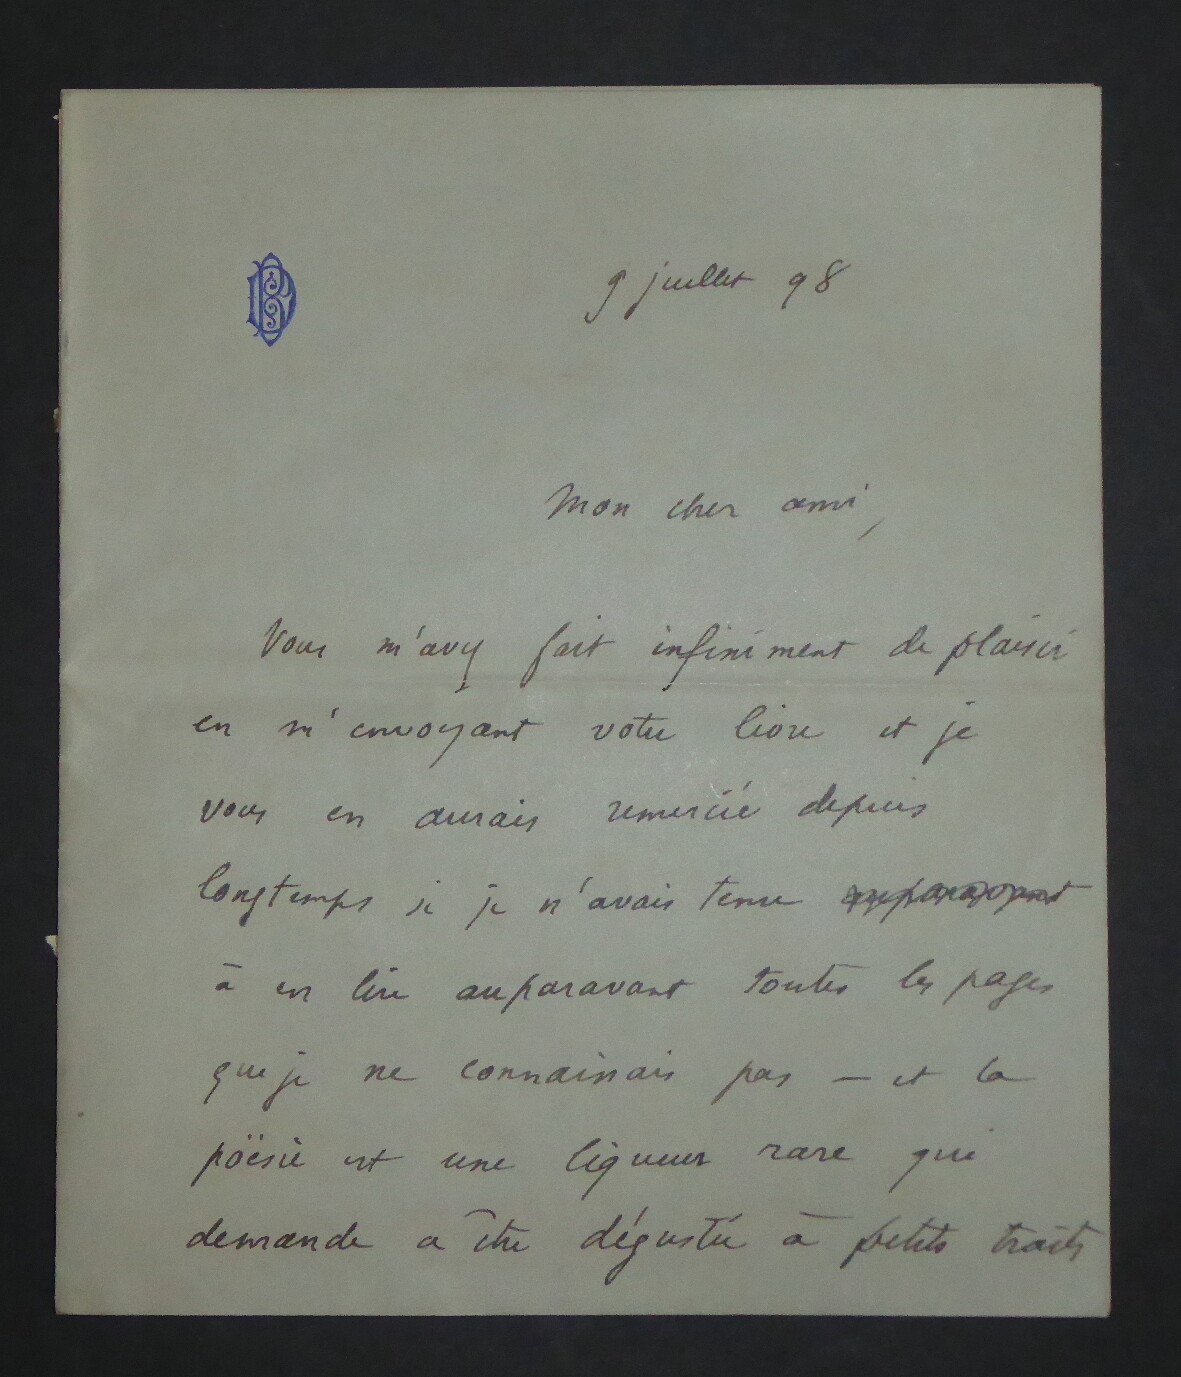 9 juillet 98
Mon cher ami,
Vous m'avez fait infiniment de plaisir
en m'envoyant votre livre et je
vous en aurais remercié depuis
longtemps si je n'avais tenu auparavant
à en lire auparavant toutes les pages
que je ne connaissais pas — et la
poësie est une liqueur rare qui
demande a être dégustée à petits traits